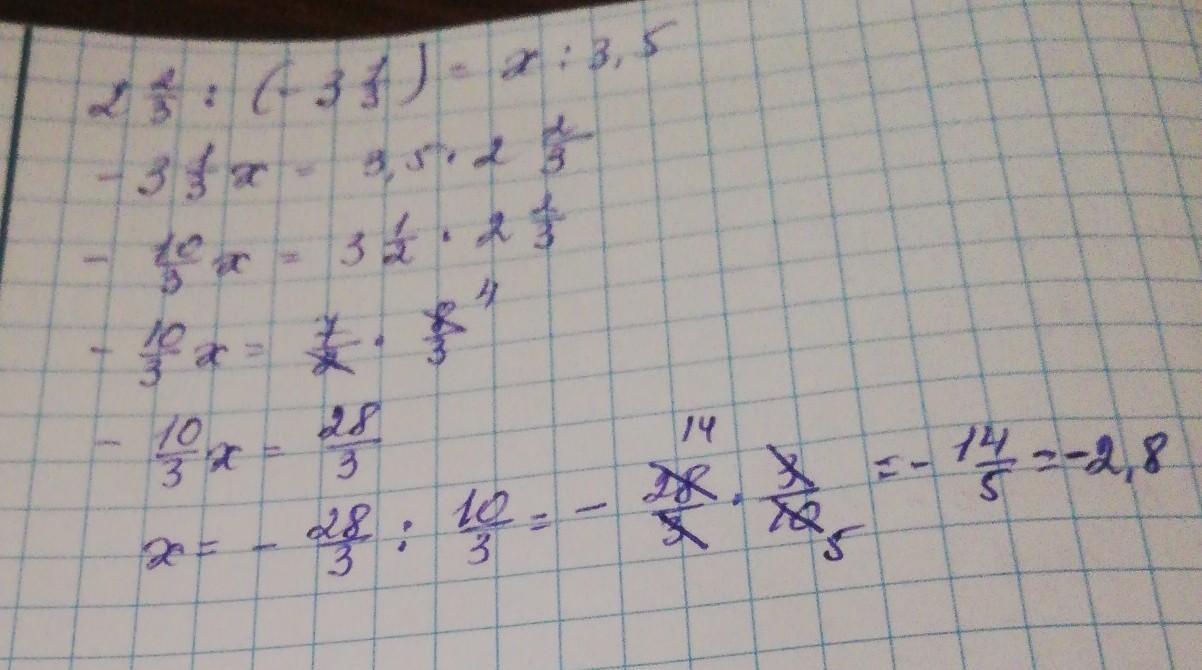 2 2/3 : (- 3 1/3) = x : 3,5
- 3 1/3 x = 3,5 · 2 2/3
- 10/3 x = 3 1/2 · 2 2/3
- 10/3 x = 7/2 · 8/3 4
- 10/3 x = 28/3
x = - 28/3 : 10/3 = - 28/3 · 3/10 14 5 = - 14/5 = -2,8